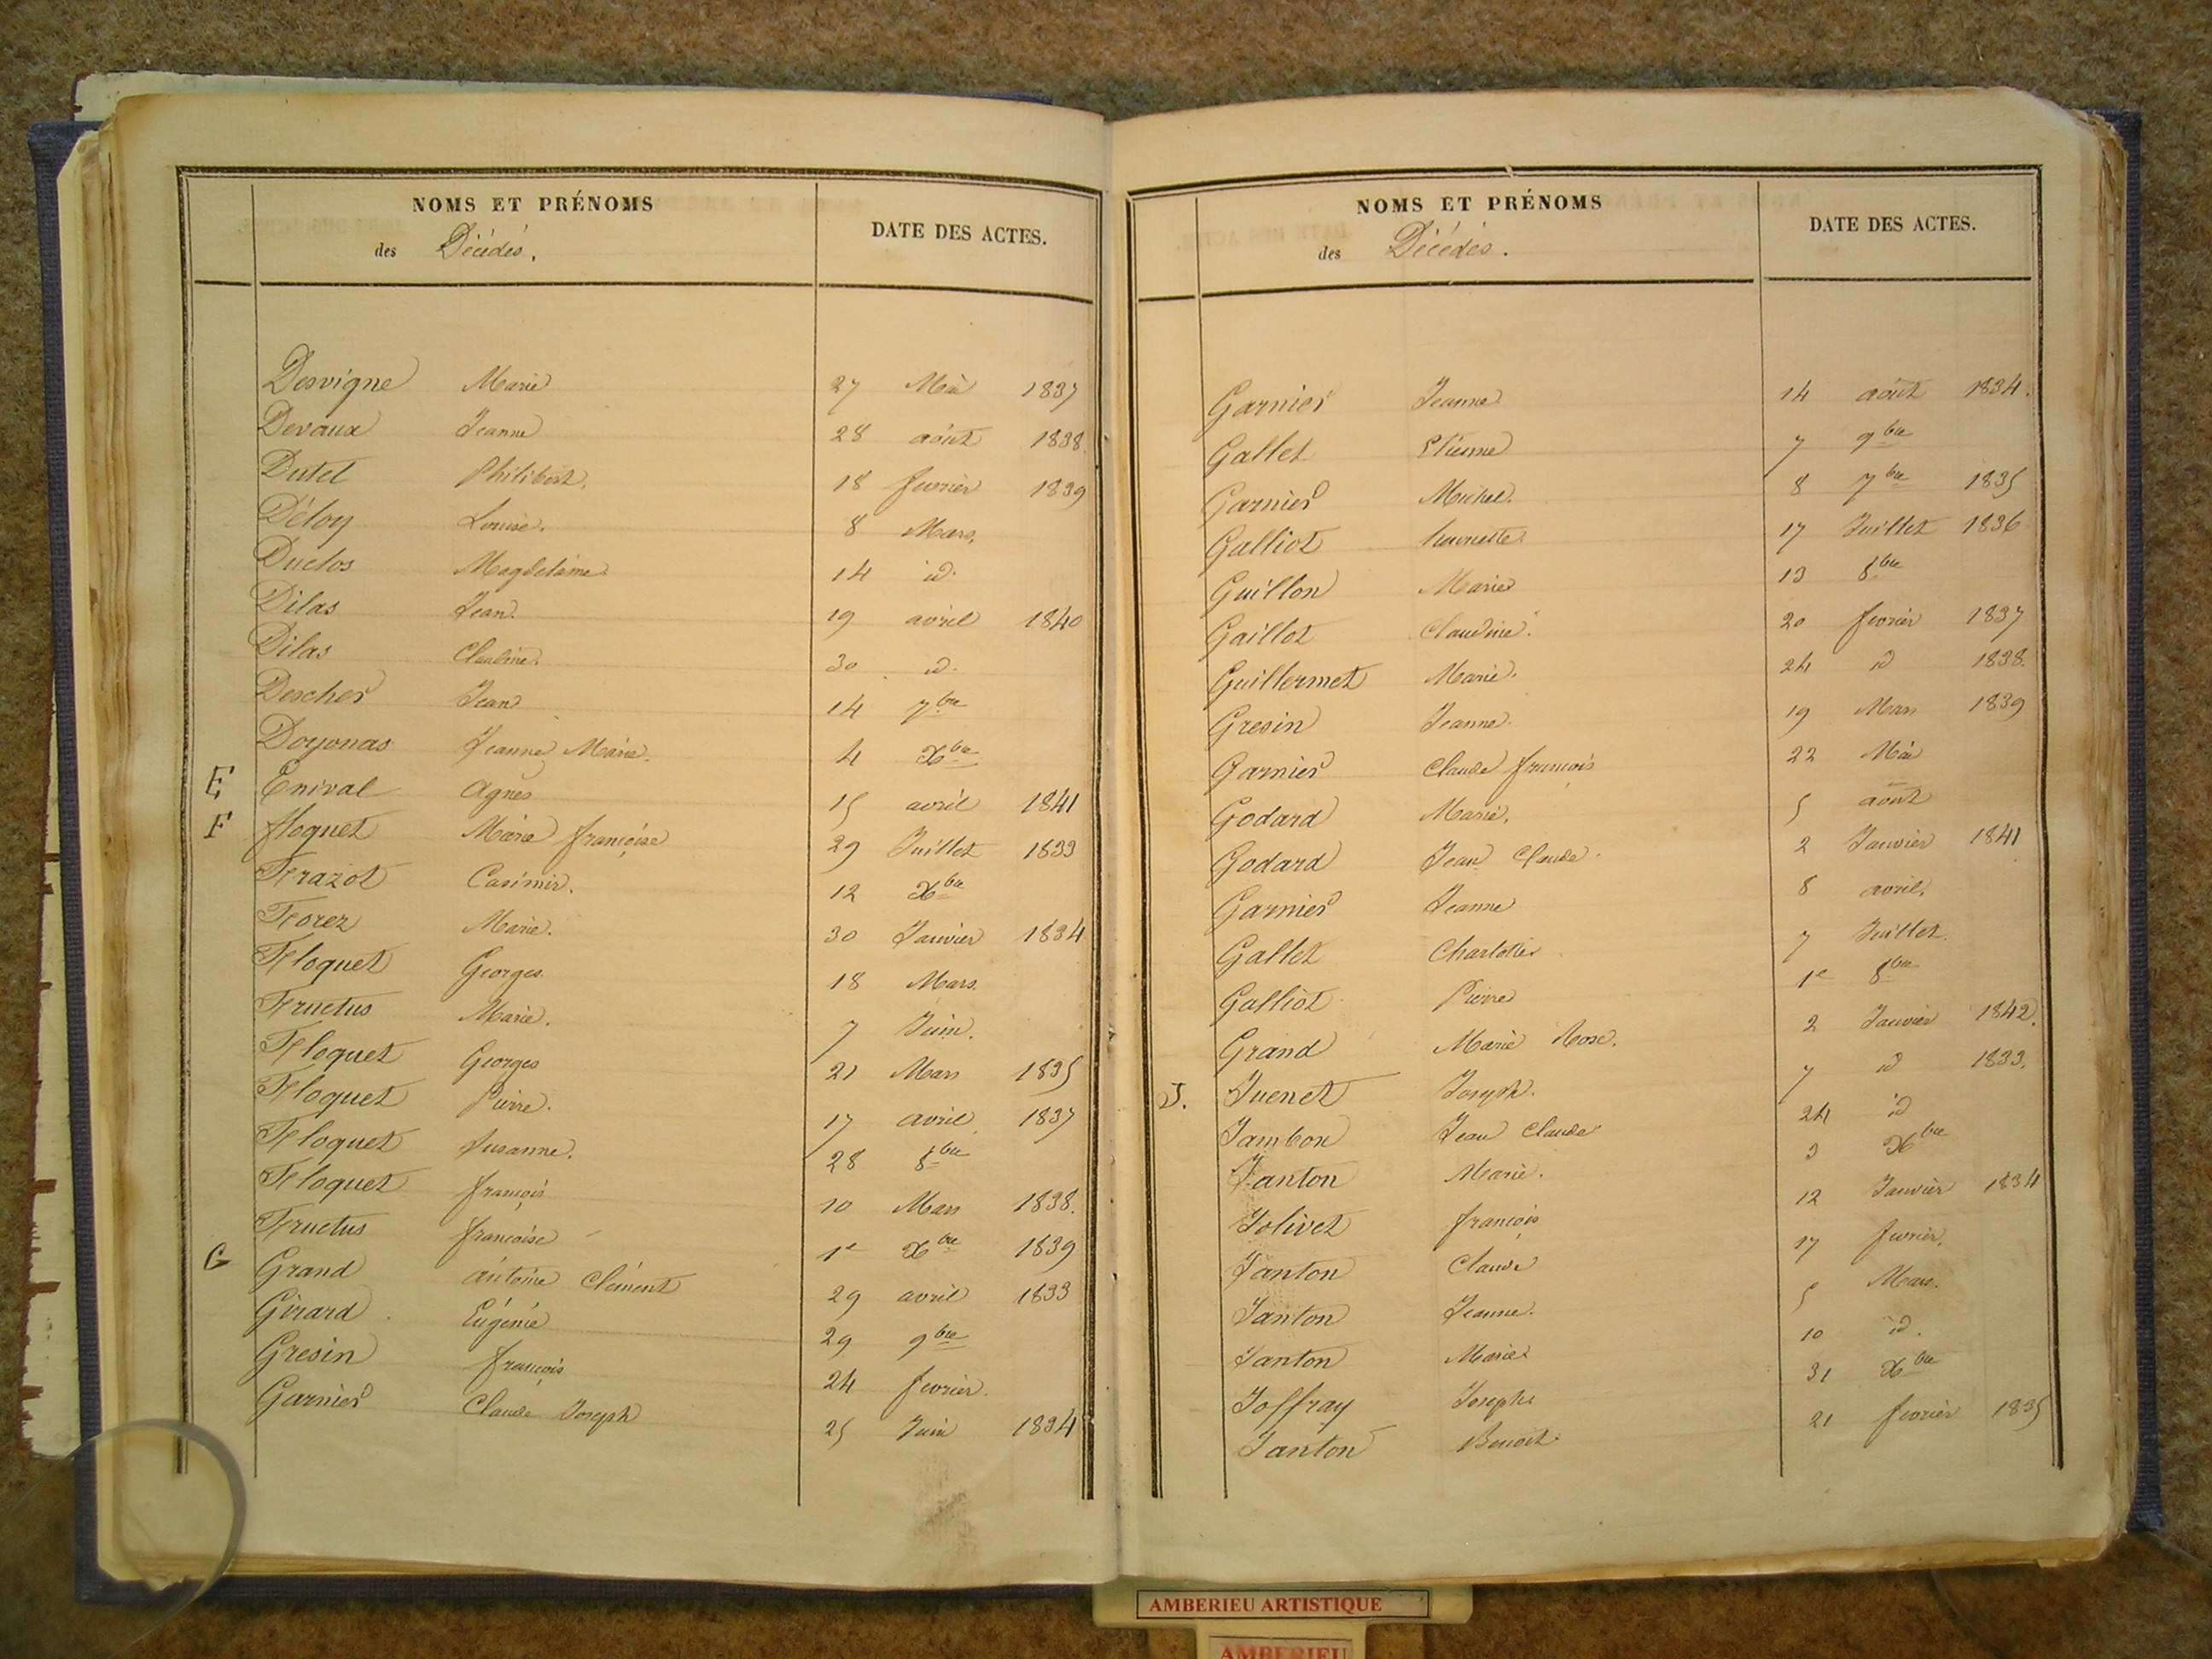 NOMS ET PRÉNOMS
des Décédés.
DATE DES ACTES.
Desvigne Marie 27 Mai 1837
Devaux Jeanne 28 août 1838
Dutel Philibert. 18 fevrier 1839
Déloy Louise. 8 Mars.
Duclos Magdelaine 14 id.
Dilas Jean. 19 avril 1840
Dilas Claudine. 30 id.
Descher Jean 14 7bre
Doyonas Jeanne Marie. 4 Xbre
E Enival Agnès 15 avril 1841
F floquet Marie françoise 29 Juillet 1833
Frazot Casimir. 12 Xbre
Forez Marie. 30 Janvier 1834
Floquet Georges. 18 Mars.
Fructus Marie. 7 Juin.
Floquet Georges 21 Mars 1835
Floquet Pierre. 17 avril 1837
Floquet Susanne. 28 8bre
Floquet françois 10 Mars 1838.
Fructus françoise 1e Xbre 1839
G Grand antoine Clément 29 avril 1833
Girard Eugénie 29 9bre
Gresin françois 24 fevrier.
Garnier Claude Joseph 25 Juin 1834
NOMS ET PRÉNOMS
des Décédés.
DATE DES ACTES.
Garnier Jeanne 14 août 1834.
Gallet Etienne 7 9bre
Garnier Michel. 8 7bre 1835
Galliot henriette 17 Juillet 1836
Guillon Marie 13 8bre
Gaillot Claudine. 20 fevrier 1837
Guillermet Marie. 24 id 1838.
Gresin Jeanne. 19 Mars 1839
Garnier Claude françois 22 Mai
Godard Marie. 5 août
Godard Jean Claude. 2 Janvier 1841
Garnier Jeanne 8 avril.
Gallet Charlotte 7 Juillet.
Galliot Pierre 1e 8bre
Grand Marie Rose. 2 Janvier 1842.
J. Juenet Joseph. 7 id 1833.
Jambon Jean Claude 24 id
Janton Marie. 3 Xbre
Jolivet françois 12 Janvier 1834
Janton Claude 17 fevrier.
Janton Jeanne. 5 Mars.
Janton Marie 10 id.
Joffray Joseph 31 Xbre
Janton Benoit 21 fevrier 1835
AMBERIEU ARTISTIQUE
AMBERIEU